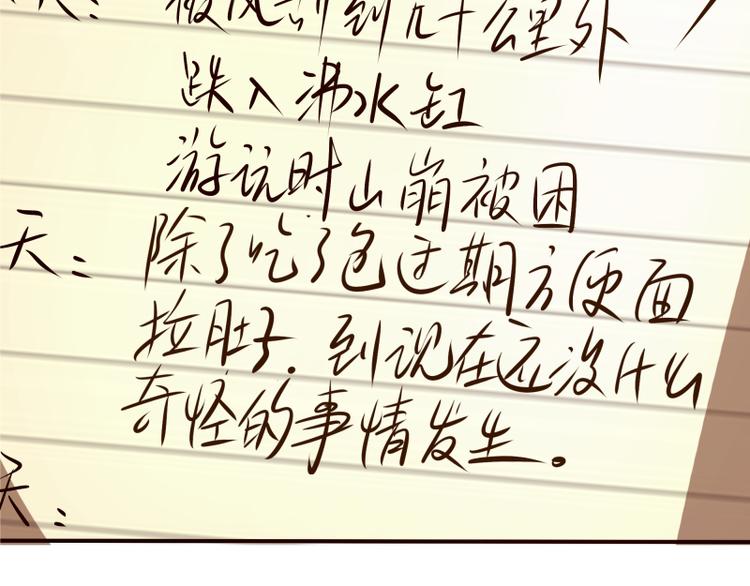 天：被风刮到几十公里外
跌入沸水缸
游玩时山崩被困
天：除了吃了包过期方便面
拉肚子.到现在还没什么
奇怪的事情发生。
天：